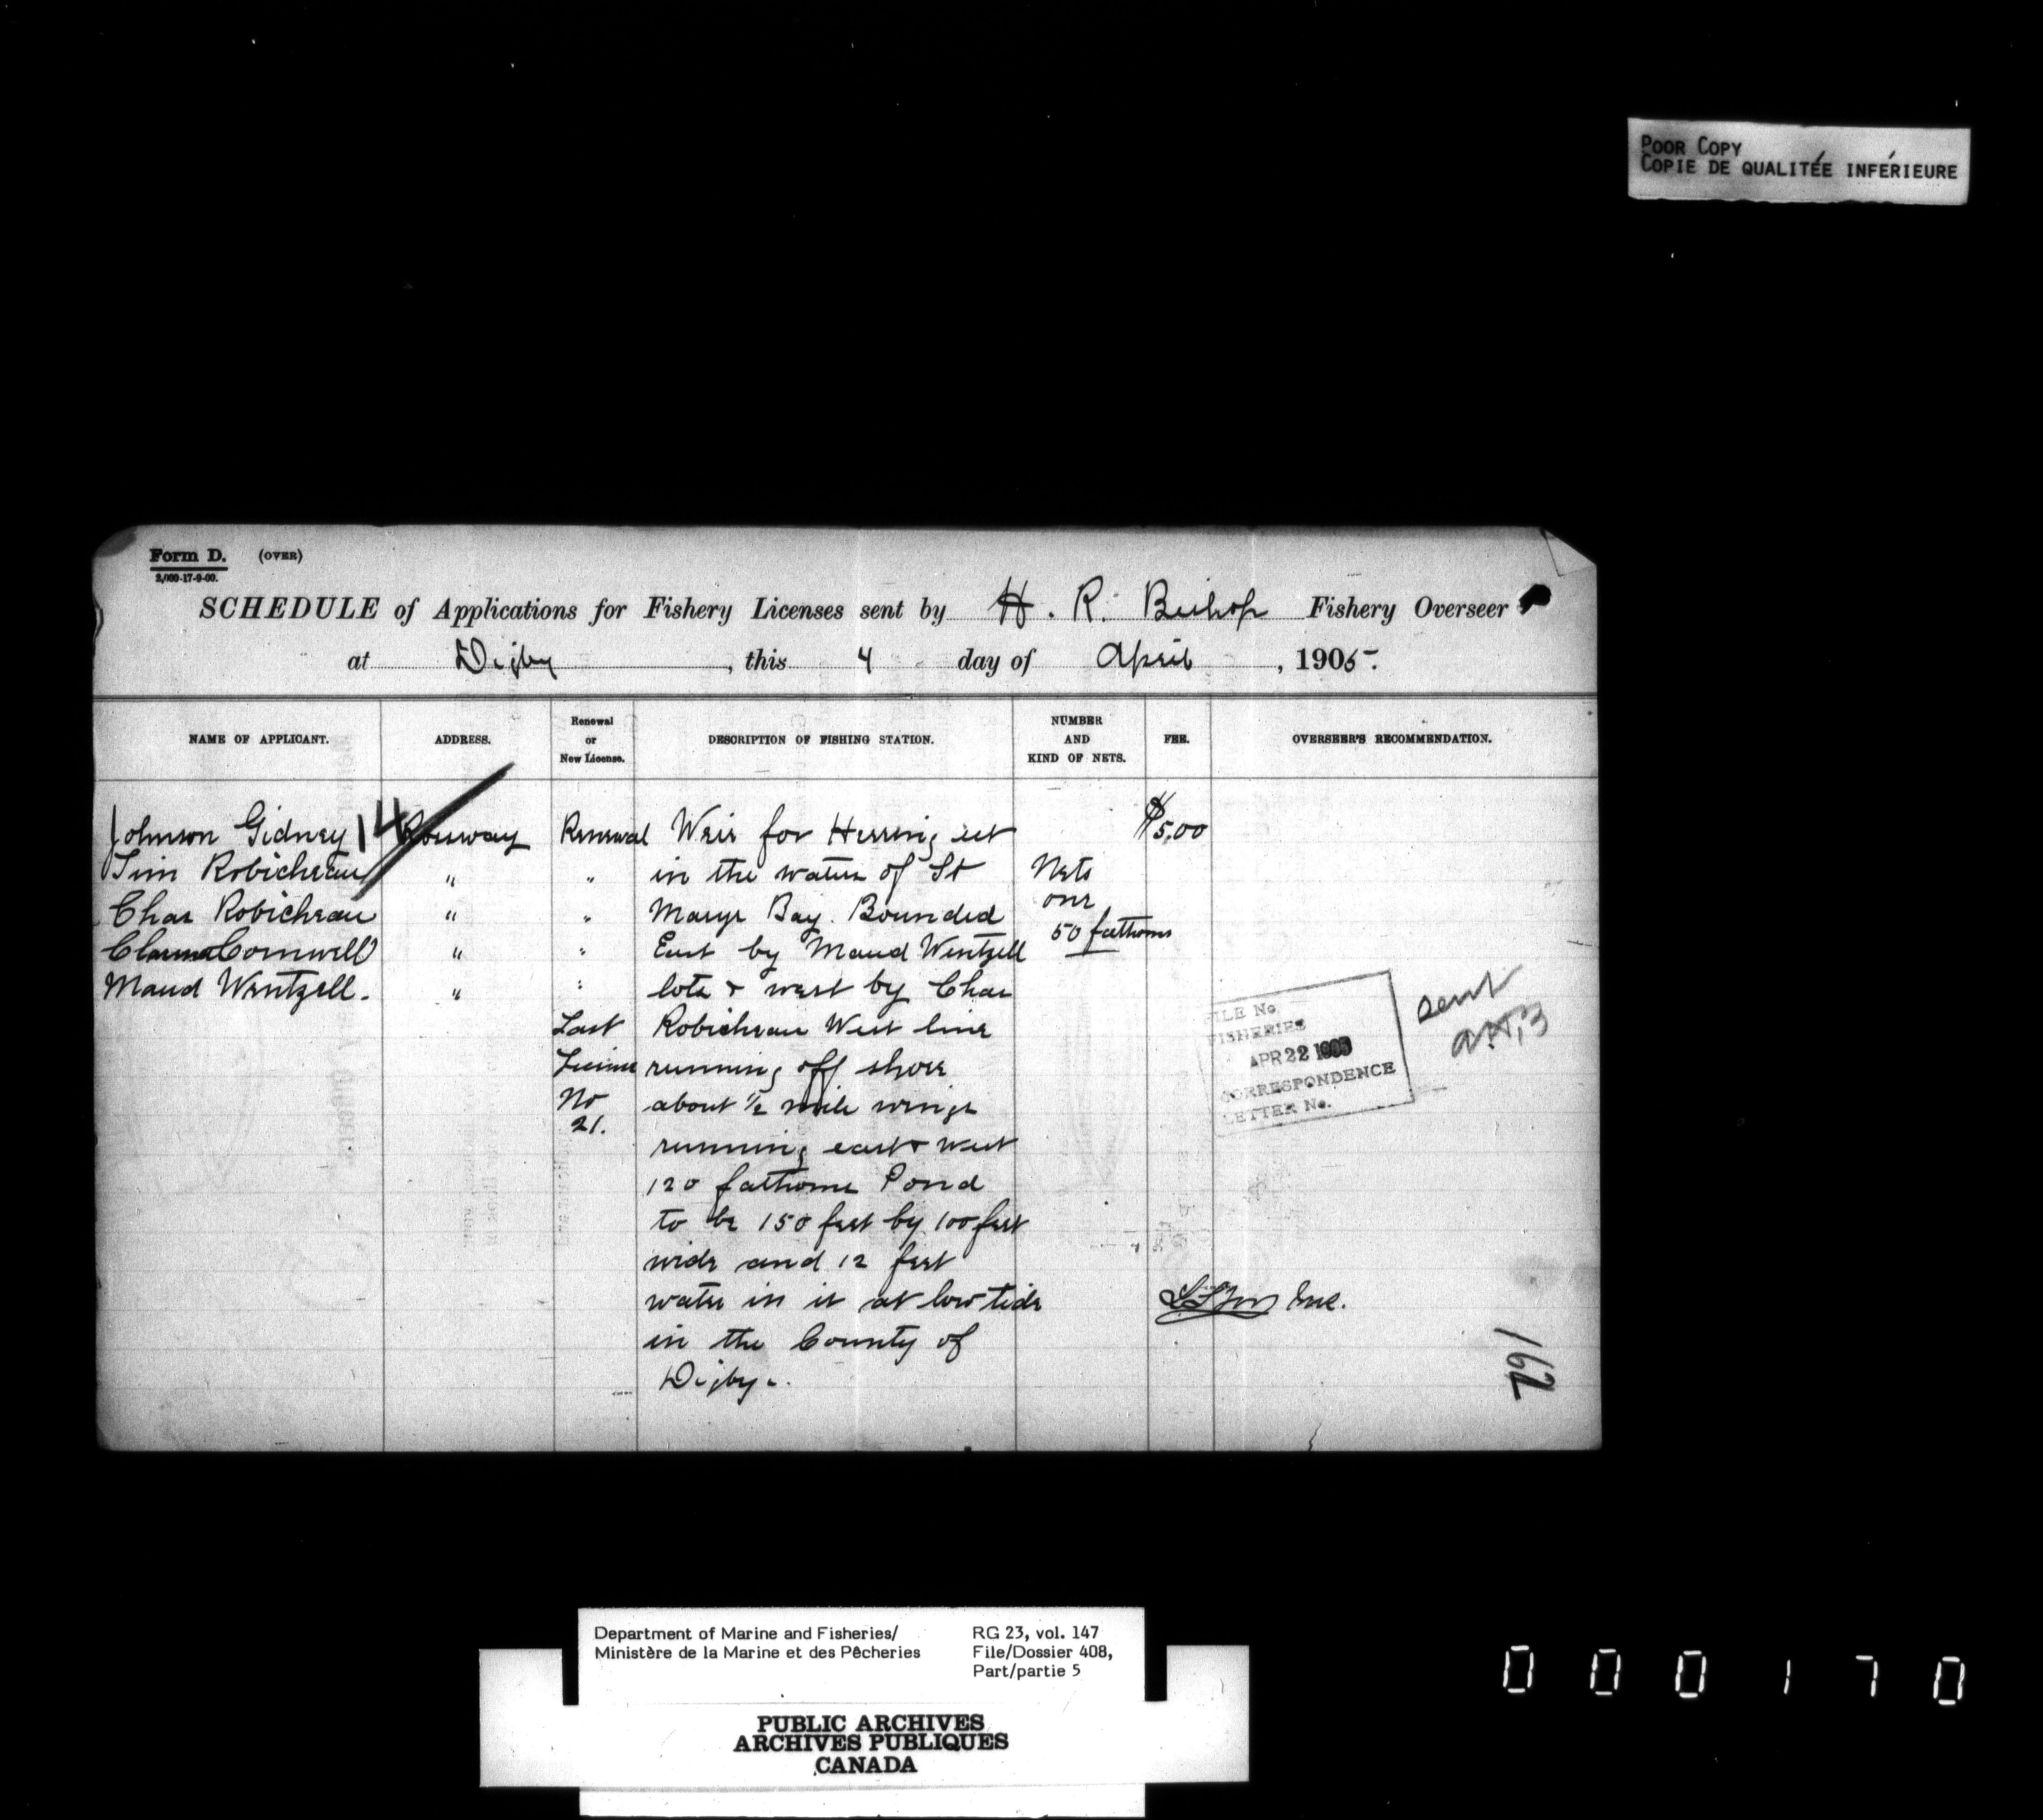 POOR COPY
COPIE DE QUALITÉE INFÉRIEURE
Form D. (OVER)
2,000-17-9-00.
SCHEDULE of Applications for Fishery Licenses sent by H. R. Bishop Fishery Overseer
at Digby, this 4 day of April, 1905.
NAME OF APPLICANT. ADDRESS. Renewal or New License. DESCRIPTION OF FISHING STATION. NUMBER AND KIND OF NETS. FEE. OVERSEER'S RECOMMENDATION.
Johnson Gidney 14 Rossway Renewal Weir for Herring set $5.00
Tim Robicheau " " in the waters of St Nets
Chas Robicheau " " Marys Bay. Bounded one
Cornwell " " East by Maud Wentzell 50 fathoms
Maud Wentzell. " " lots & west by Chas
Last Robicheau West line
License running off shore
No about ½ mile wings
21. running east & west
120 fathoms Pond
to be 150 feet by 100 feet
wide and 12 feet
water in it at low tide
in the County of
Digby.
FILE No
FISHERIES
APR 22 1905
CORRESPONDENCE
LETTER No.
sent
162
Department of Marine and Fisheries/ RG 23, vol. 147
Ministère de la Marine et des Pêcheries File/Dossier 408,
Part/partie 5
PUBLIC ARCHIVES
ARCHIVES PUBLIQUES
CANADA
000170